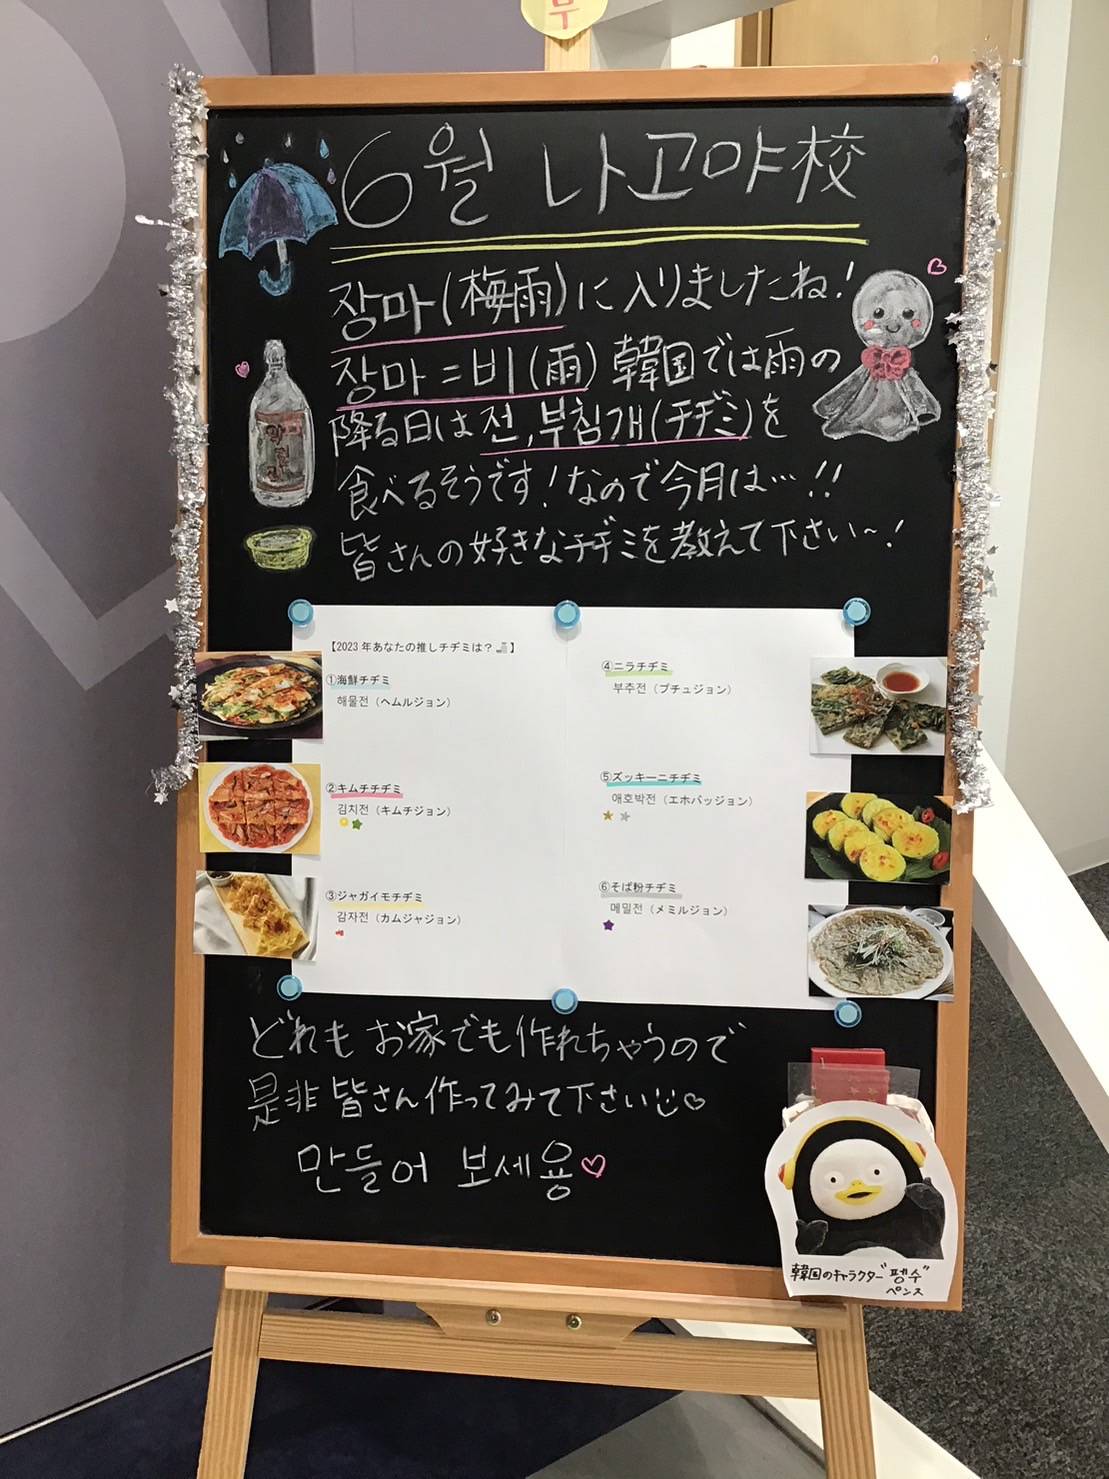 부
6월 나고야校
장마(梅雨)に入りましたね!
장마=비(雨) 韓国では雨の
降る日は전,부침개(チヂミ)を
食べるそうです!なので今月は…!!
皆さんの好きなチヂミを教えて下さい~!
막걸리
【2023年あなたの推しチヂミは?】
①海鮮チヂミ
해물전（ヘムルジョン）
②キムチチヂミ
김치전（キムチジョン）
③ジャガイモチヂミ
감자전（カムジャジョン）
④ニラチヂミ
부추전（プチュジョン）
⑤ズッキーニチヂミ
애호박전（エホバッジョン）
⑥そば粉チヂミ
메밀전（メミルジョン）
どれもお家でも作れちゃうので
是非皆さん作ってみて下さい♡
만들어 보세용♡
韓国のキャラクター"펭수"
ペンス